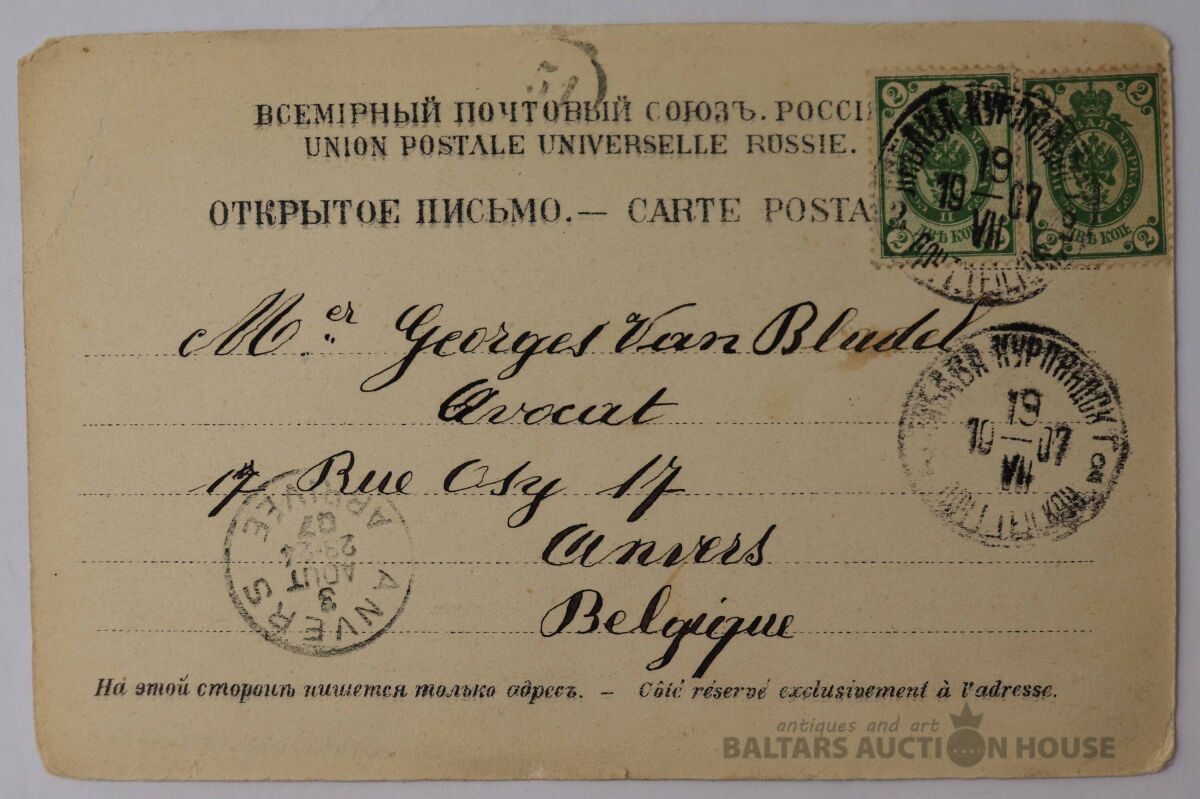 ВСЕМІРНЫЙ ПОЧТОВЫЙ СОЮЗЪ. РОССІЯ
UNION POSTALE UNIVERSELLE RUSSIE.
ОТКРЫТОЕ ПИСЬМО.— CARTE POSTA
2 2
МАРКА
2 ДВѢ КОП. 2
2 2
ВАЯ МАРКА
2 ДВѢ КОП. 2
КУРЛЯНД
19
19 — 07
VII
Mer Georges Van Bladel
Avocat
17 Rue Osy 17
Anvers
Belgique
КУРЛЯНДСК Г
19
19 — 07
VII
ANVERS
3
AOUT
23-24
07
ARRIVEE
На этой сторонѣ пишется только адресъ. — Côté réservé exclusivement à l'adresse.
antiques and art
BALTARS AUCTION HOUSE